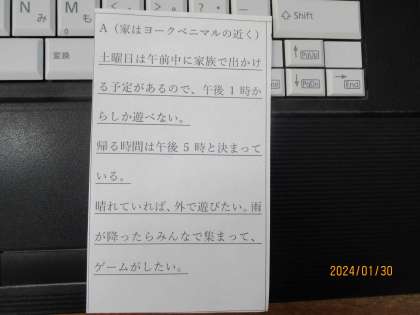 A（家はヨークベニマルの近く）
土曜日は午前中に家族で出かけ
る予定があるので、午後１時か
らしか遊べない。
帰る時間は午後５時と決まって
いる。
晴れていれば、外で遊びたい。雨
が降ったらみんなで集まって、
ゲームがしたい。
N
み
M
も
<
>
?
Shift
変換
PgUp
PgDn
End
2024/01/30